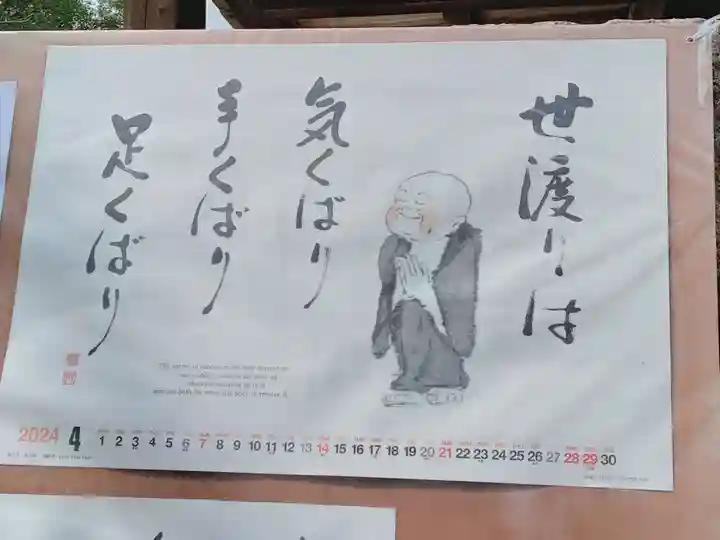 世渡りは
気くばり
手くばり
足くばり
2024 4 1 2 3 4 5 6 7 8 9 10 11 12 13 14 15 16 17 18 19 20 21 22 23 24 25 26 27 28 29 30